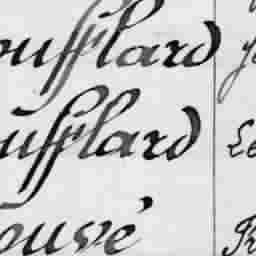 oufflard
ufflard Le
ouvé